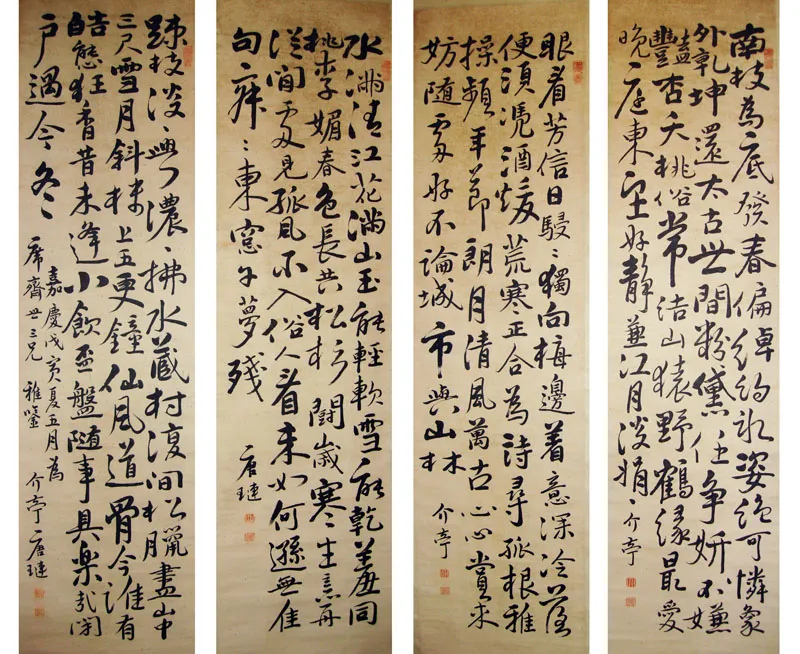 南枝為底發春偏綽約冰姿絕可憐象
外乾坤還太古世間粉黛任爭妍不嫌
豔杏夭桃俗常結山猿野鶴緣最愛
晚庭東望好靜兼江月淡娟〻介亭
眼看芳信日駸〻獨向梅邊着意深冷落
便須憑酒煖荒寒正合為詩尋孤根雅
操頻年節朗月清風萬古心心賞未
妨隨處好不論城市與山林
介亭
水滿清江花滿山玉能輕軟雪能乾羞同
桃李媚春色長共松杉鬪歲寒生意再
從閒處見孤風不入俗人看來如何遜無佳
句寂〻東窗午夢殘
唐璉
疎枝淡〻與濃〻拂水藏村復間松臘盡山中
三尺雪月斜林上五更鐘仙風道骨今誰有
皓態狂香昔未逢小飲盃盤隨事具樂哉閉
戶過今冬
嘉慶戊寅夏五月為
席齋世三兄雅鑒
介亭唐璉